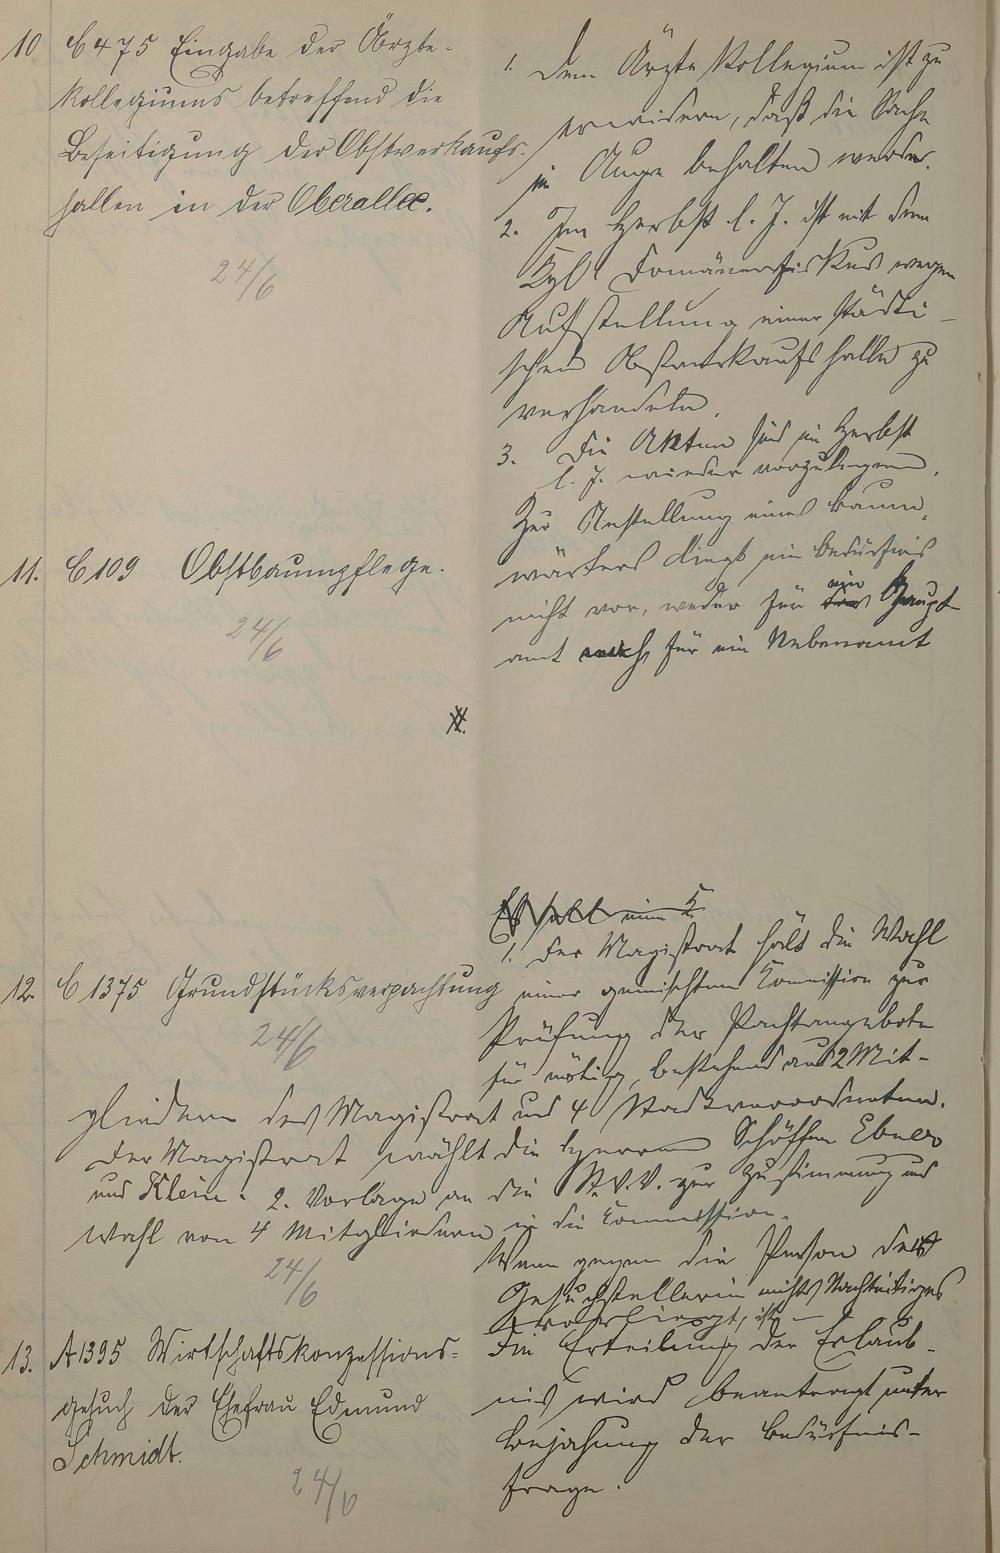 10 C 475 Eingabe des Ärzte-
kollegiums betreffend die
Beseitigung der Obstverkaufs-
hallen in der Oberallee.
24/6
1. Dem Ärzte Kollegium ist zu
erwidern, daß die Sache
im Auge behalten werde.
2. Im Herbst l. J. ist mit dem
Kgl. Domänenfiskus wegen
Aufstellung einer städti-
schen Obstverkaufshalle zu
verhandeln.
3. Die Akten sind im Herbst
l. J. wieder vorzulegen.
11. C 109 Obstbaumpflege.
24/6
Zur Anstellung eines Baum-
wärters liegt ein Bedürfnis
nicht vor, weder für ein Haupt-
amt noch für ein Nebenamt
12. C 1375 Grundstücksverpachtung
24/6
Es soll eine K
1. Der Magistrat hält die Wahl
einer gemischten Kommission zur
Prüfung der Pachtangebote
für nötig, bestehend aus 2 Mit-
gliedern des Magistrat und 4 Stadtverordneten.
Der Magistrat wählt die Herren Schöffen Ebner
und Klein. 2. Vorlage an die St.V.V. zur Zustimmung und
Wahl von 4 Mitgliedern in die Kommission.
24/6
13. A 1395 Wirtschaftskonzessions-
gesuch der Ehefrau Edmund
Schmidt.
24/6
Wenn gegen die Person der
Gesuchstellerin nichts Nachteiliges
vorliegt, ist
Die Erteilung der Erlaub-
nis wird beantragt unter
Bejahung der Bedürfnis-
frage.